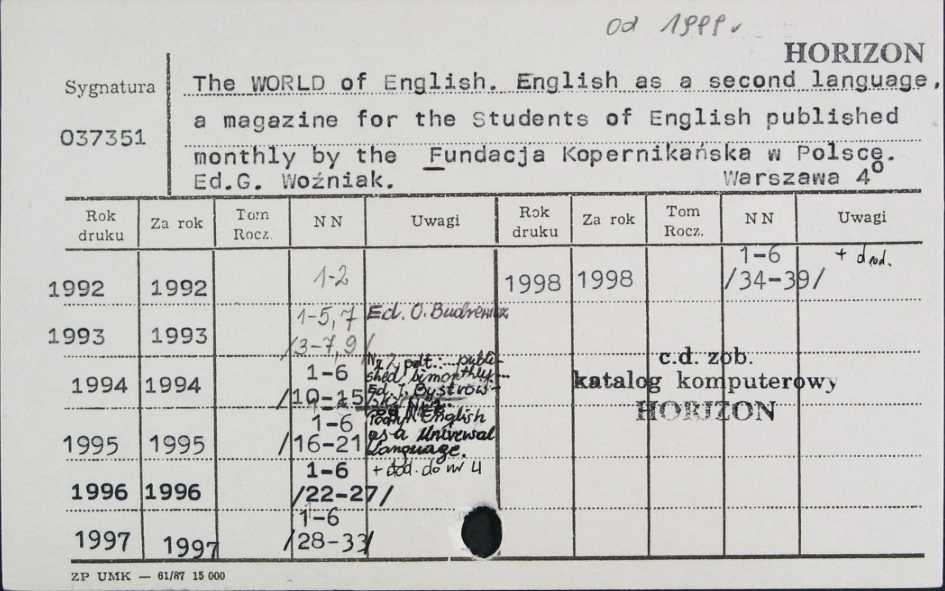 od 1999 r
HORIZON
Sygnatura
037351
The WORLD of English. English as a second language,
a magazine for the Students of English published
monthly by the Fundacja Kopernikańska w Polsce.
Ed.G. Woźniak. Warszawa 4°
Rok druku Za rok Tom Rocz. NN Uwagi Rok druku Za rok Tom Rocz. NN Uwagi
1992 1992 1-2 1998 1998 1-6 /34-39/ + dod.
1993 1993 1-5, 7 /3-7, 9/ Ed. O. Budrewicz
1994 1994 1-6 /10-15/ Nr 2 podt.: publi-
shed bimonthly.
Ed. J. Bystrow-
1995 1995 1-6 /16-21/ English
as a Universal
Language.
1996 1996 1-6 /22-27/ + dod. do nr 4
1997 1997 1-6 /28-33/
c.d. zob.
katalog komputerowy
HORIZON
ZP UMK — 61/87 15 000